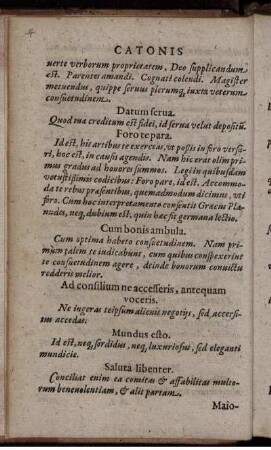 CATONIS
uerte verborum proprietatem. Deo supplicandum
est. Parentes amandi. Cognati colendi. Magister
metuendus, quippe seruus plerumq, iuxta veterum
consuetudinem.
Datum serua.
Quod tua creditum est fidei, id serua velut depositũ.
Foro te para.
Id est, his artibus te exerceas, vt possis in foro versa-
ri, hoc est, in causis agendis. Nam hic erat olim pri-
mus gradus ad honores summos. Legi in quibusdam
vetustissimis codicibus: Foro pare, id est, Accommo-
da te rebus præsentibus, quemadmodum dicimus, vti
foro. Cum hoc interpretamento consentit Græcus Pla-
nudes, neq, dubium est, quin hæc sit germana lectio.
Cum bonis ambula.
Cum optima habeto consuetudinem. Nam pri-
mùm talem te indicabunt, cum quibus conspexerint
te consuetudinem agere, deinde bonorum conuictu
redderis melior.
Ad consilium ne accesseris, antequam
voceris.
Ne ingeras teipsum alienis negotijs, sed accersi-
tus accedas.
Mundus esto.
Id est, neq, sordidus, neq, luxuriosus, sed eleganti
mundicie.
Saluta libenter.
Conciliat enim ea comitas & affabilitas multo-
rum beneuolentiam, & alit partam.
Maio-